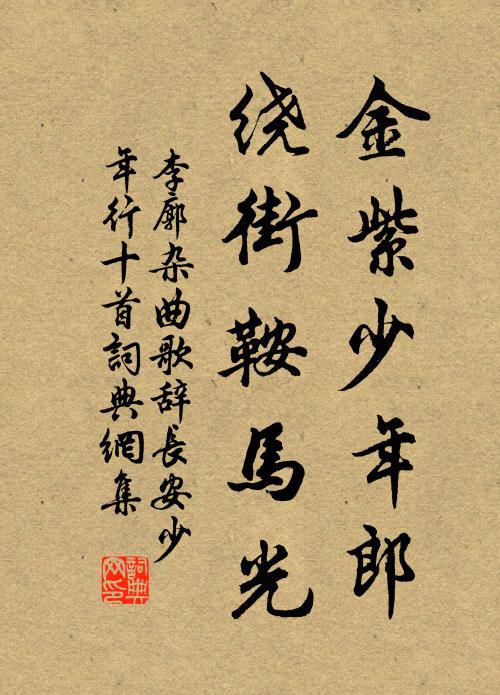 金紫少年郎
绕街鞍馬光
李廓杂曲歌辞長安少
年行十首詞典網集
詞典
网印